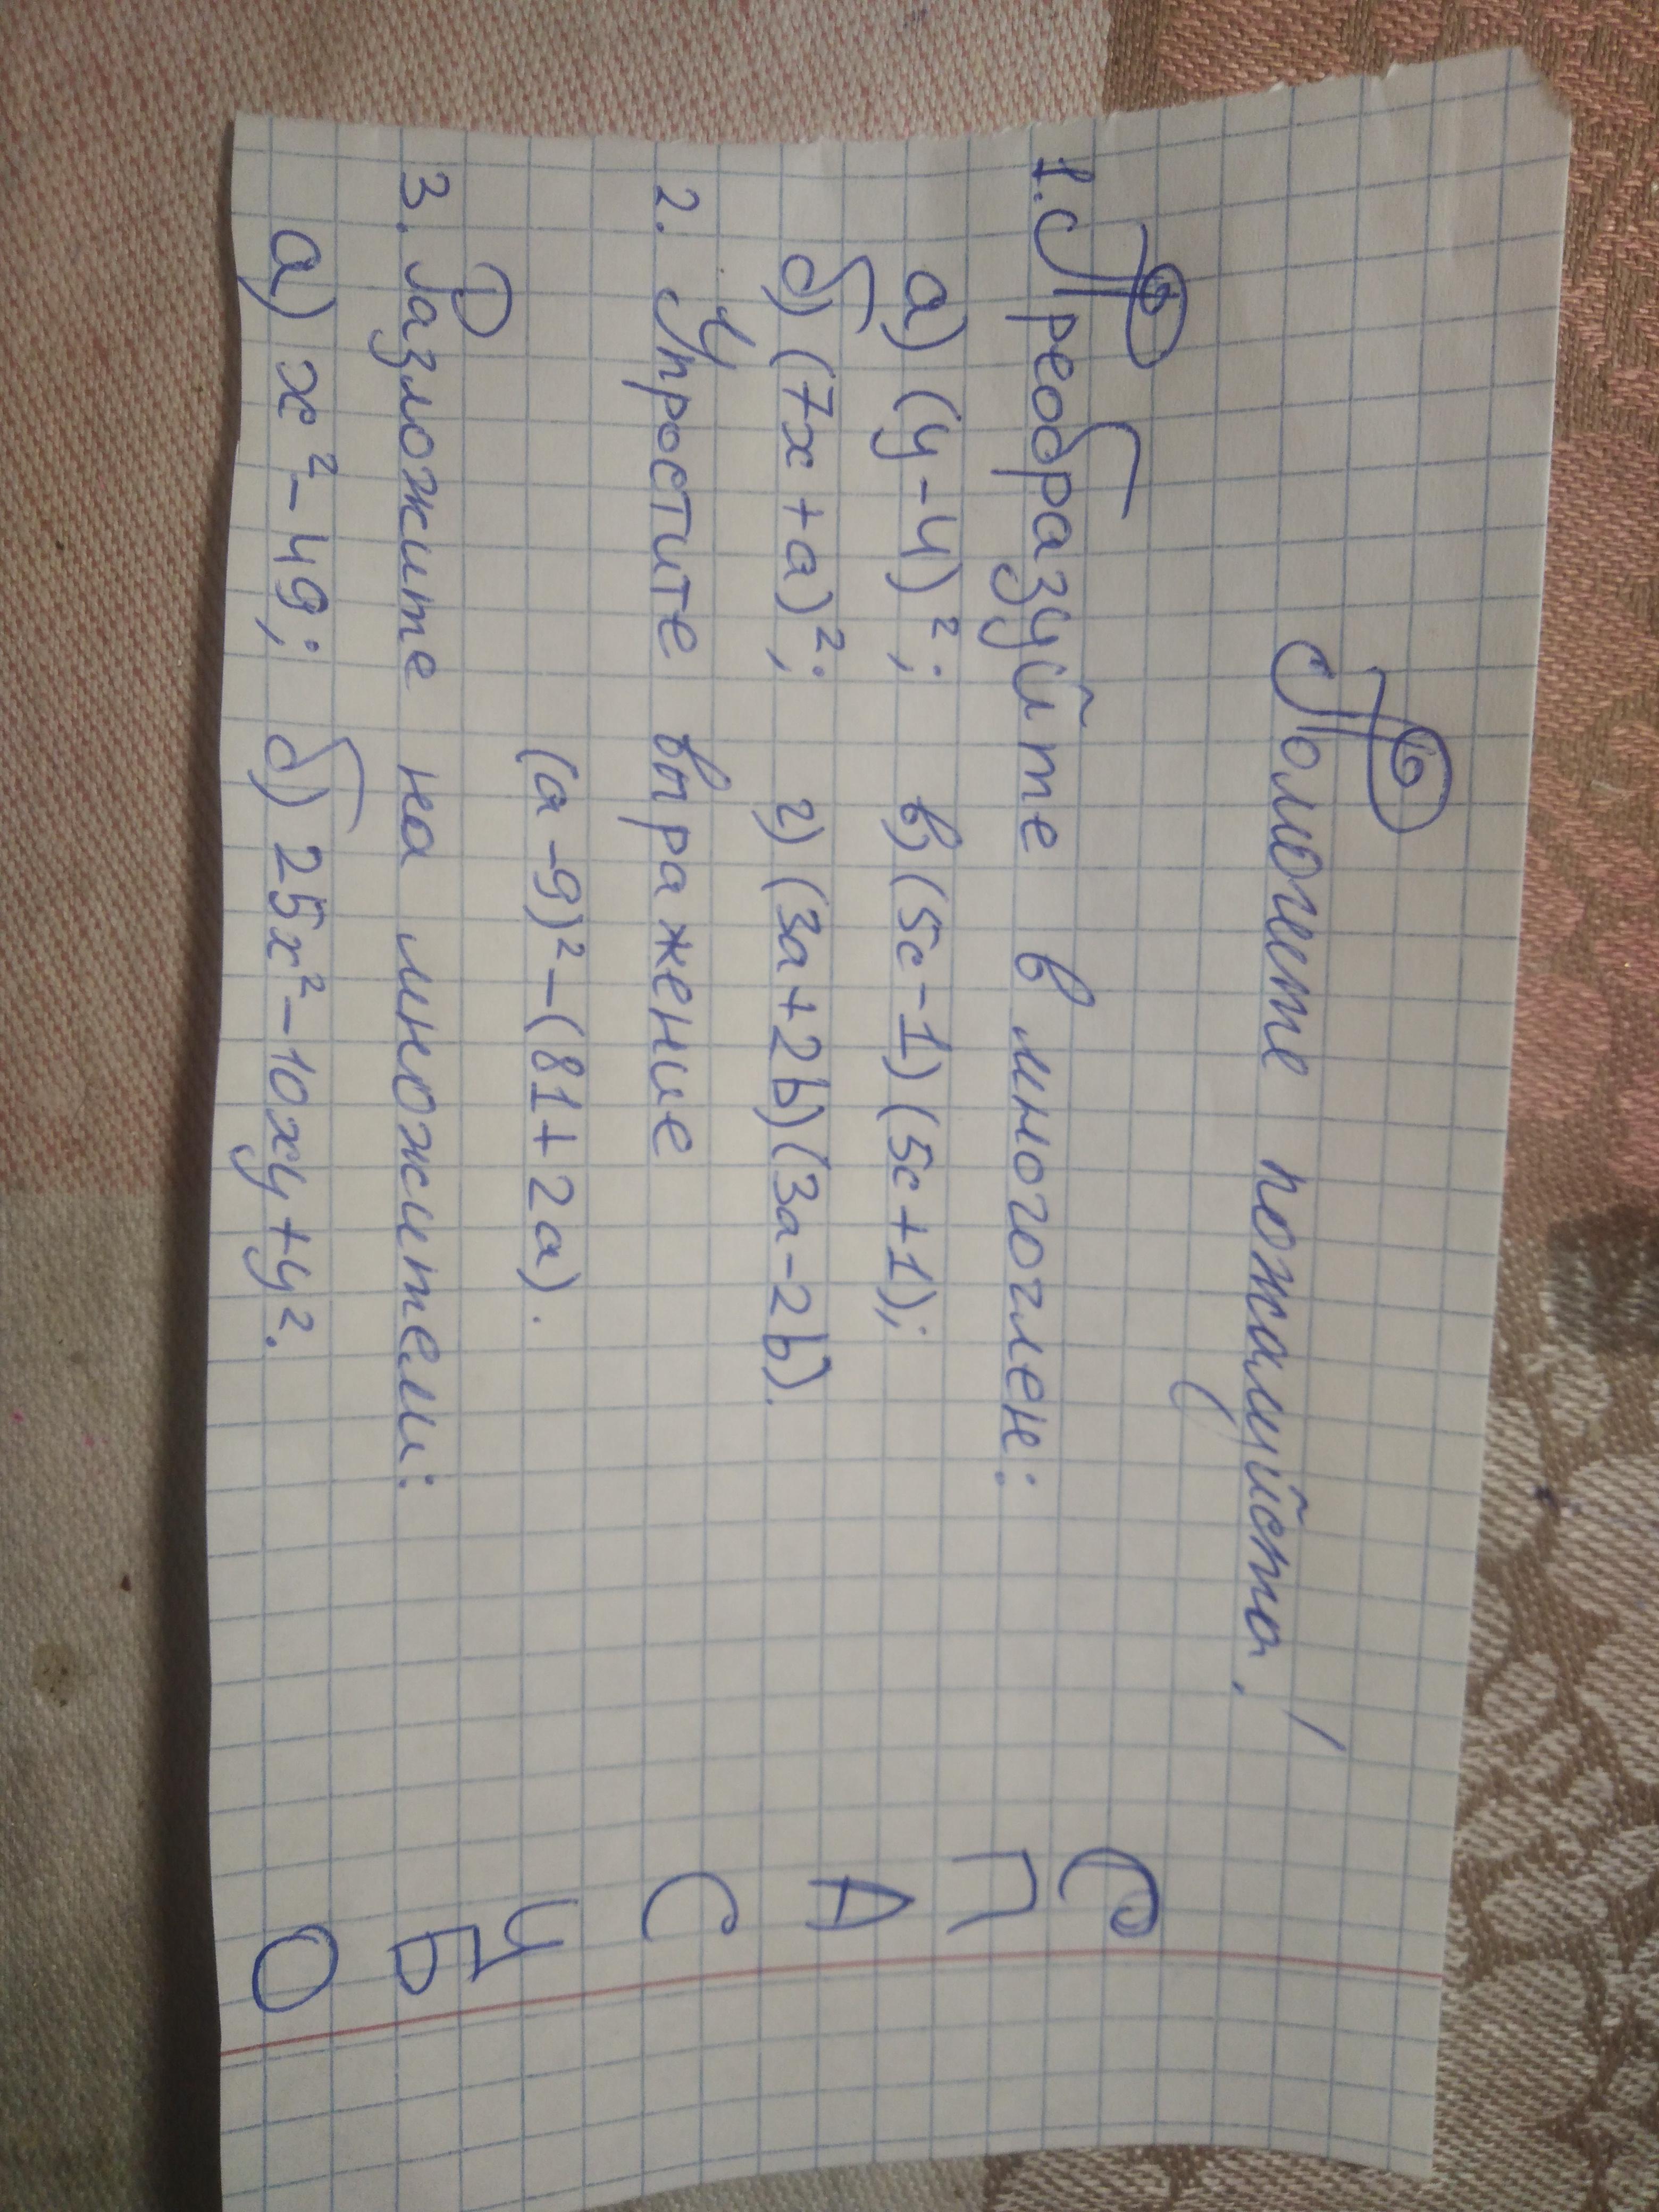 Помогите пожалуйста!
1. Преобразуйте в многочлен:
а) (y-4)²; в) (5c-1)(5c+1);
б) (7x+a)²; г) (3a+2b)(3a-2b).
2. Упростите выражение
(a-9)²-(81+2a).
3. Разложите на множители:
а) x²-49; б) 25x²-10xy+y².
С
П
А
С
И
Б
О